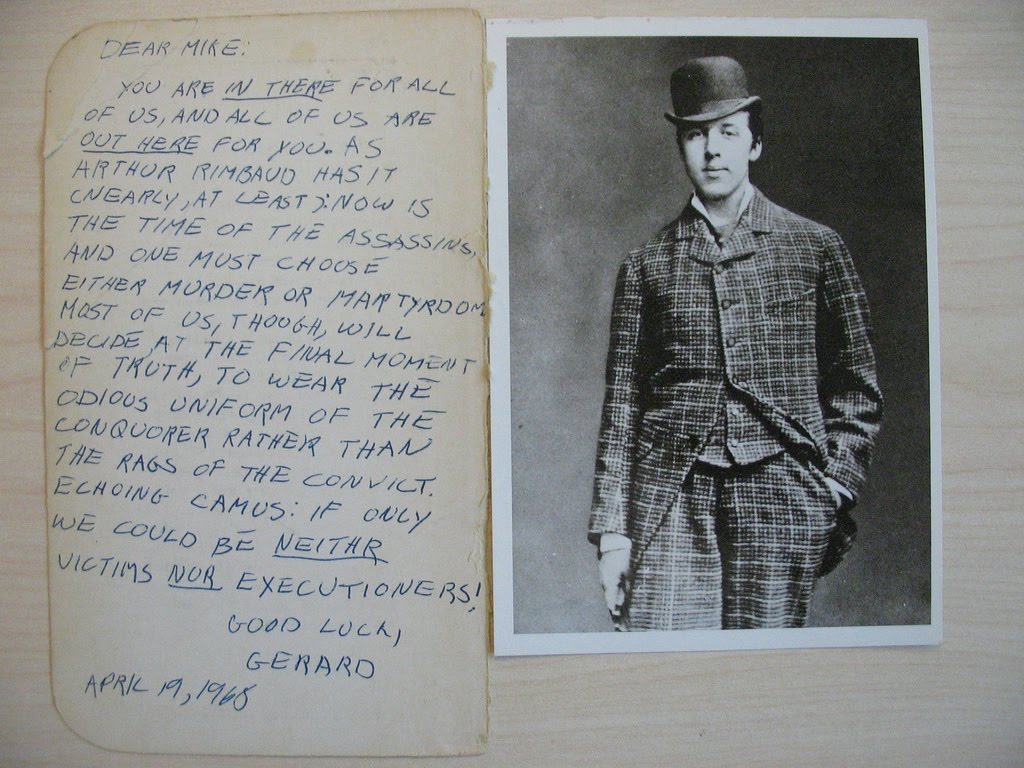 DEAR MIKE:
YOU ARE IN THERE FOR ALL
OF US, AND ALL OF US ARE
OUT HERE FOR YOU. AS
ARTHUR RIMBAUD HAS IT
(NEARLY, AT LEAST): NOW IS
THE TIME OF THE ASSASSINS,
AND ONE MUST CHOOSE
EITHER MURDER OR MARTYRDOM.
MOST OF US, THOUGH, WILL
DECIDE, AT THE FINAL MOMENT
OF TRUTH, TO WEAR THE
ODIOUS UNIFORM OF THE
CONQUORER RATHER THAN
THE RAGS OF THE CONVICT.
ECHOING CAMUS: IF ONLY
WE COULD BE NEITHR
VICTIMS NOR EXECUTIONERS!
GOOD LUCK,
GERARD
APRIL 19, 1968